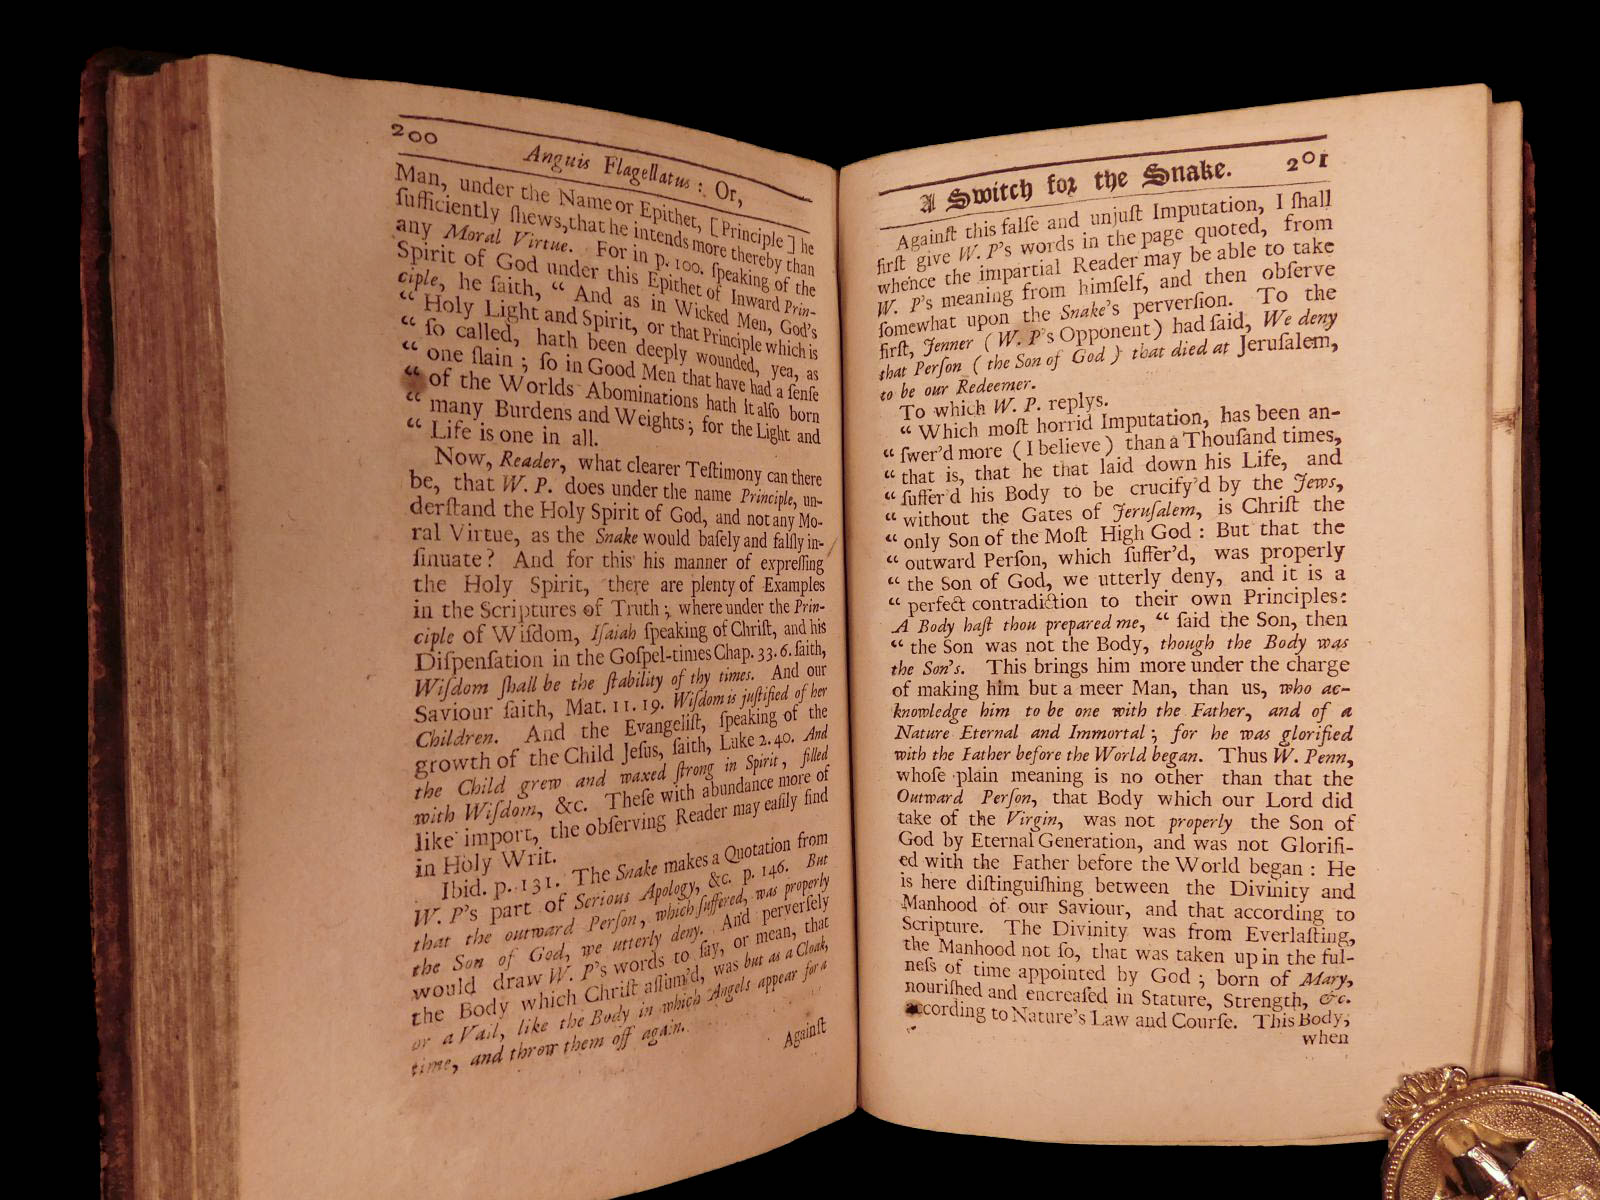 200
Anguis Flagellatus: Or,
Man, under the Name or Epithet, [Principle] he
ſufficiently ſhews, that he intends more thereby than
any Moral Virtue. For in p. 100. ſpeaking of the
Spirit of God under this Epithet of Inward Prin-
ciple, he ſaith, “ And as in Wicked Men, God's
“ Holy Light and Spirit, or that Principle which is
“ ſo called, hath been deeply wounded, yea, as
“ one ſlain ; ſo in Good Men that have had a ſenſe
“ of the Worlds Abominations hath it alſo born
“ many Burdens and Weights ; for the Light and
“ Life is one in all.
Now, Reader, what clearer Teſtimony can there
be, that W. P. does under the name Principle, un-
derſtand the Holy Spirit of God, and not any Mo-
ral Virtue, as the Snake would baſely and falſly in-
ſinuate ? And for this his manner of expreſſing
the Holy Spirit, there are plenty of Examples
in the Scriptures of Truth ; where under the Prin-
ciple of Wiſdom, Iſaiah ſpeaking of Chriſt, and his
Diſpenſation in the Goſpel-times Chap. 33. 6. ſaith,
Wiſdom ſhall be the ſtability of thy times. And our
Saviour ſaith, Mat. 11. 19. Wiſdom is juſtified of her
Children. And the Evangeliſt, ſpeaking of the
growth of the Child Jeſus, ſaith, Luke 2. 40. And
the Child grew and waxed ſtrong in Spirit, filled
with Wiſdom, &c. Theſe with abundance more of
like import, the obſerving Reader may eaſily find
in Holy Writ.
Ibid. p. 131. The Snake makes a Quotation from
W. P's part of Serious Apology, &c. p. 146. But
that the outward Perſon, which ſuffered, was properly
the Son of God, we utterly deny. And perverſely
would draw W. P's words to ſay, or mean, that
the Body which Chriſt aſſum'd, was but as a Cloak,
or a Vail, like the Body in which Angels appear for a
time, and throw them off again.
Againſt
A Switch for the Snake. 201
Againſt this falſe and unjuſt Imputation, I ſhall
firſt give W. P's words in the page quoted, from
whence the impartial Reader may be able to take
W. P's meaning from himſelf, and then obſerve
ſomewhat upon the Snake's perverſion. To the
firſt, Jenner ( W. P's Opponent ) had ſaid, We deny
that Perſon ( the Son of God ) that died at Jeruſalem,
to be our Redeemer.
To which W. P. replys.
“ Which moſt horrid Imputation, has been an-
“ ſwer'd more ( I believe ) than a Thouſand times,
“ that is, that he that laid down his Life, and
“ ſuffer'd his Body to be crucify'd by the Jews,
“ without the Gates of Jeruſalem, is Chriſt the
“ only Son of the Moſt High God : But that the
“ outward Perſon, which ſuffer'd, was properly
“ the Son of God, we utterly deny, and it is a
“ perfect contradiction to their own Principles:
A Body haſt thou prepared me, “ ſaid the Son, then
“ the Son was not the Body, though the Body was
the Son's. This brings him more under the charge
of making him but a meer Man, than us, who ac-
knowledge him to be one with the Father, and of a
Nature Eternal and Immortal ; for he was glorified
with the Father before the World began. Thus W. Penn,
whoſe plain meaning is no other than that the
Outward Perſon, that Body which our Lord did
take of the Virgin, was not properly the Son of
God by Eternal Generation, and was not Glorifi-
ed with the Father before the World began : He
is here diſtinguiſhing between the Divinity and
Manhood of our Saviour, and that according to
Scripture. The Divinity was from Everlaſting,
the Manhood not ſo, that was taken up in the ful-
neſs of time appointed by God ; born of Mary,
nouriſhed and encreaſed in Stature, Strength, &c.
according to Nature's Law and Courſe. This Body,
when